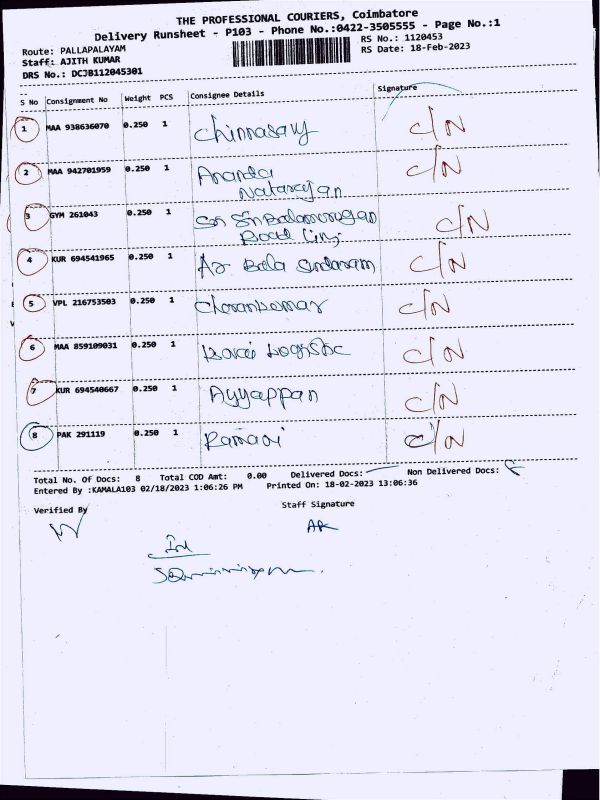 THE PROFESSIONAL COURIERS, Coimbatore
Delivery Runsheet - P103 - Phone No.:0422-3505555 - Page No.:1
Route: PALLAPALAYAM
RS No.: 1120453
Staff: AJITH KUMAR
RS Date: 18-Feb-2023
DRS No.: DCJB112045301
S No Consignment No Weight PCS Consignee Details Signature
1 MAA 938636070 0.250 1 Chinnasamy C/N
2 MAA 942701959 0.250 1 Ananda C/N
Natarajan
3 GYM 261043 0.250 1 Sri Sri Balamurugan C/N
4 KUR 694541965 0.250 1 Bala Sundaram C/N
5 VPL 216753503 0.250 1 C/N
6 MAA 859109031 0.250 1 Logistic C/N
7 KUR 694540667 0.250 1 Ayyappan C/N
8 PAK 291119 0.250 1 Ramani C/N
Total No. Of Docs: 8 Total COD Amt: 0.00 Delivered Docs: Non Delivered Docs: 8
Entered By :KAMALA103 02/18/2023 1:06:26 PM Printed On: 18-02-2023 13:06:36
Verified By Staff Signature
AK